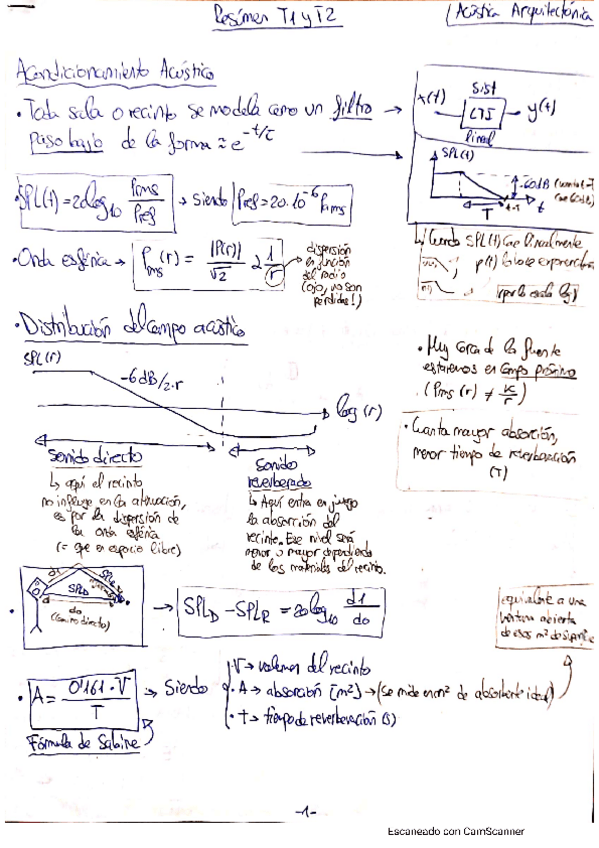 Resúmen T1 y T2
Acústica Arquitectónica
Acondicionamiento Acústico
• Toda sala o recinto se modela como un filtro
paso bajo de la forma ≈ e^-t/τ
x(t) → Sist LTI → y(t)
lineal
SPL(t)
-60dB
T
t
• SPL(t) = 20log10 Prms/Pref → Siendo Pref = 20·10^-6 Prms
↳ Cuando SPL(t) cae linealmente
p(t) lo hace exponencial
(por la escala log)
• Onda esférica → Prms(r) = |P(r)|/√2 α 1/r
dispersión
en función
del radio
(ojo, no son
pérdidas!)
• Distribución del campo acústico
SPL(r)
-6dB/2·r
log(r)
Sonido directo
↳ aquí el recinto
no influye en la atenuación,
es por la dispersión de
la onda esférica
(= que en espacio libre)
Sonido
reverberado
↳ Aquí entra en juego
la absorción del
recinto. Ese nivel será
menor o mayor dependiendo
de los materiales del recinto.
• Muy cerca de la fuente
estaremos en campo próximo
(Prms(r) ≠ K/r)
• Cuanta mayor absorción,
menor tiempo de reverberación
(T)
• d1
SPLR
SPLD
do
(camino directo)
→ SPLD - SPLR = 20log10 d1/do
equivalente a una
ventana abierta
de esos m² de superficie
• A = 0'161·V/T → Siendo
• V → volumen del recinto
• A → absorción [m²] → (Se mide en m² de absorbente ideal)
• t → tiempo de reverberación (s)
Fórmula de Sabine
-1-
Escaneado con CamScanner